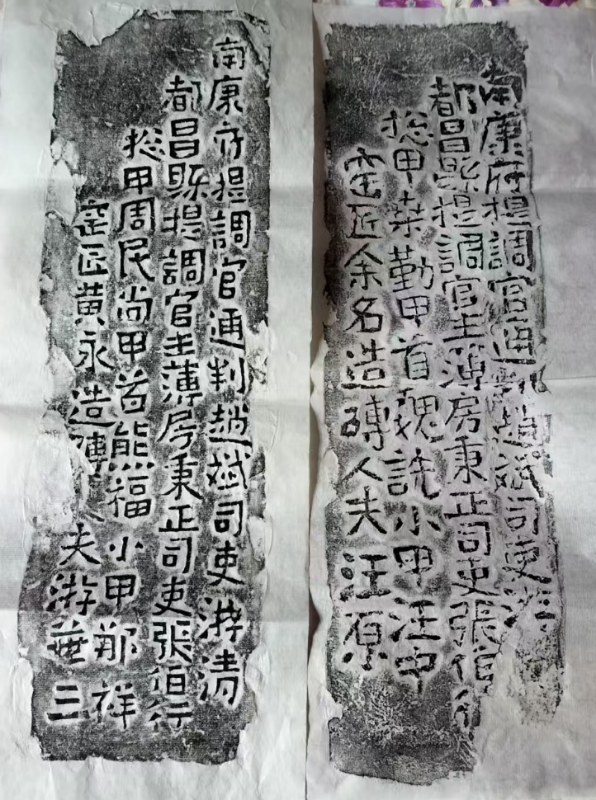 南康府提調官通判趙斌司吏游
都昌縣提調官主薄房秉正司吏張伯行
捴甲桒勤甲首魏詵小甲汪中
窑匠余名造磚人夫汪原
南康府提調官通判趙斌司吏游清
都昌縣提調官主薄房秉正司吏張伯行
捴甲周民尚甲首熊福小甲祥
窑匠黄永造磚夫游華三